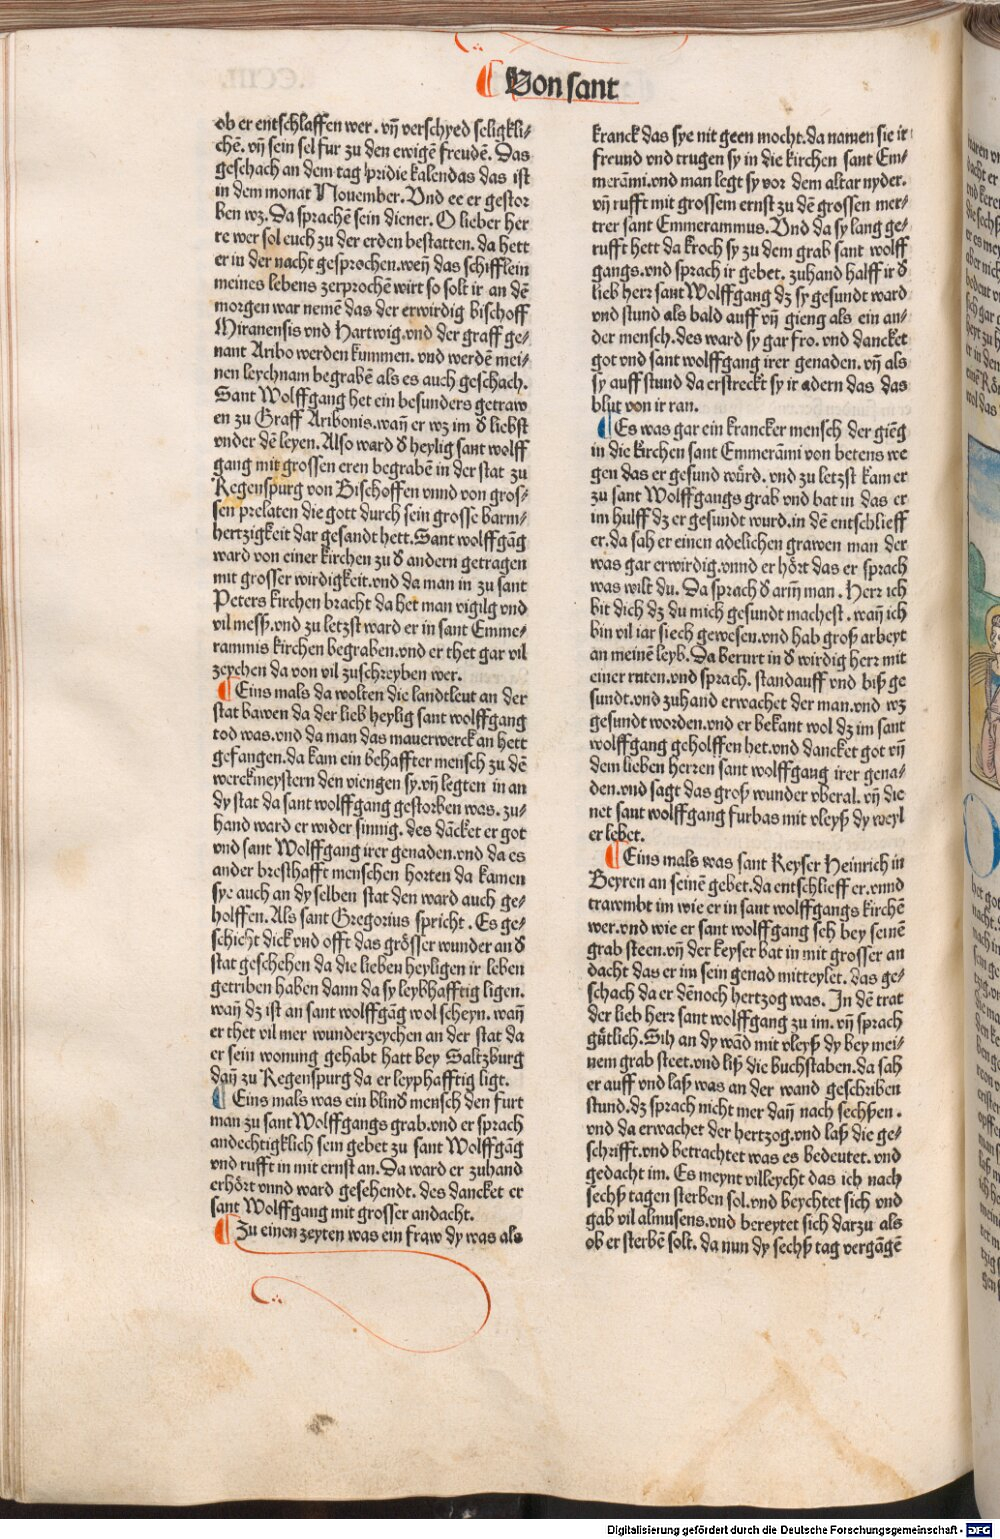 Von sant
ob er entschlaffen wer. vn̄ verschyed seligkli-
chē. vn̄ sein sel fur zu den ewigē freudē. Das
geschach an dem tag pridie kalendas das ist
in dem monat Nouember. Vnd ee er gestor
ben wz. Da sprachē sein diener. O lieber her
re wer sol euch zu der erden bestatten. da hett
er in der nacht gesprochen. weñ das schifflein
meines lebens zerprochē wirt so solt ir an dē
morgen war nemē das der erwirdig bischoff
Miranensis vnd Hartwig. vnd der graff ge-
nant Aribo werden kummen. vnd werdē mei-
nen leychnam begrabē als es auch geschach.
Sant Wolffgang het ein besunders getraw
en zu Graff Aribonis. wañ er wz im d̕ liebst
vnder dē leyen. Also ward d̕ heylig sant wolff
gang mit grossen eren begrabē in der stat zu
Regenspurg von Bischoffen vnnd von gros-
sen prelaten die gott durch sein grosse barm-
hertzigkeit dar gesandt hett. Sant wolffgāg
ward von einer kirchen zu d̕ andern getragen
mit grosser wirdigkeit. vnd da man in zu sant
Peters kirchen bracht da het man vigilg vnd
vil mesß. vnd zu letzst ward er in sant Emme-
rammis kirchen begraben. vnd er thet gar vil
zeychen da von vil zuschreyben wer.
Eins mals da wolten die landtleut an der
stat bawen da der lieb heylig sant wolffgang
tod was. vnd da man das mauerwerck an hett
gefangen. da kam ein behaffter mensch zu dē
werckmeystern den viengen sy. vn̄ legten in an
dy stat da sant wolffgang gestorben was. zu-
hand ward er wider sinnig. des dācket er got
vnd sant Wolffgang irer genaden. vnd da es
ander bresthafft menschen horten da kamen
sye auch an dy selben stat den ward auch ge-
holffen. Als sant Gregorius spricht. Es ge-
schicht dick vnd offt das grösser wunder an d̕
stat geschehen da die lieben heyligen ir leben
getriben haben dann da sy leybhafftig ligen.
wañ dz ist an sant wolffgāg wol scheyn. wañ
er thet vil mer wunderzeychen an der stat da
er sein wonung gehabt hatt bey Saltzburg
dañ zu Regenspurg da er leyphafftig ligt.
Eins mals was ein blind mensch den furt
man zu sant Wolffgangs grab. vnd er sprach
andechtigklich sein gebet zu sant Wolffgāg
vnd rufft in mit ernst an. Da ward er zuhand
erhört vnnd ward gesehendt. des dancket er
sant Wolffgang mit grosser andacht.
Zu einen zeyten was ein fraw dy was als
kranck das sye nit geen mocht. da namen sie ir
freund vnd trugen sy in die kirchen sant Em-
merāmi. vnd man legt sy vor dem altar nyder.
vn̄ rufft mit grossem ernst zu dē grossen mer-
trer sant Emmerammus. Vnd da sy lang ge-
rufft hett da kroch sy zu dem grab sant wolff
gangs. vnd sprach ir gebet. zuhand halff ir d̕
lieb herr sant Wolffgang dz sy gesundt ward
vnd stund als bald auff vn̄ gieng als ein an-
der mensch. des ward sy gar fro. vnd dancket
got vnd sant wolffgang irer genaden. vn̄ als
sy auff stund da erstreckt sy ir adern das das
blut von ir ran.
Es was gar ein krancker mensch der giēg
in die kirchen sant Emmerāmi von betens we
gen das er gesund würd. vnd zu letzst kam er
zu sant Wolffgangs grab vnd bat in das er
im hulff dz er gesundt wurd. in dē entschlieff
er. da sah er einen adelichen grawen man der
was gar erwirdig. vnnd er hört das er sprach
was wilt du. Da sprach d̕ arm̄ man. Herr ich
bit dich dz du mich gesundt machest. wañ ich
bin vil iar siech gewesen. vnd hab groß arbeyt
an meinē leyb. Da berurt in d̕ wirdig herr mit
einer ruten. vnd sprach. stand auff vnd biß ge
sundt. vnd zuhand erwachet der man. vnd wz
gesundt worden. vnd er bekant wol dz im sant
wolffgang geholffen het. vnd dancket got vn̄
dem lieben herren sant wolffgang irer gena-
den. vnd sagt das groß wunder vberal. vn̄ die
net sant wolffgang furbas mit vleyß dy weyl
er lebet.
Eins mals was sant Keyser Heinrich in
Beyren an seinē gebet. da entschlieff er. vnnd
trawmbt im wie er in sant wolffgangs kirchē
wer. vnd wie er sant wolffgang seh bey seinē
grab steen. vn̄ der keyser bat in mit grosser an
dacht das er im sein genad mitteylet. das ge-
schach da er dēnoch hertzog was. In dē trat
der lieb herr sant wolffgang zu im. vn̄ sprach
gütlich. Sih an dy wād mit vleyß dy bey mei-
nem grab steet. vnd liß die buchstaben. da sah
er auff vnd laß was an der wand geschriben
stund. dz sprach nicht mer dañ nach sechßen.
vnd da erwachet der hertzog. vnd laß die ge-
schrifft. vnd betrachtet was es bedeutet. vnd
gedacht im. Es meynt villeycht das ich nach
sechß tagen sterben sol. vnd beychtet sich vnd
gab vil almusens. vnd bereytet sich darzu als
ob er sterbē solt. da nun dy sechß tag vergāgē
Digitalisierung gefördert durch die Deutsche Forschungsgemeinschaft - DFG